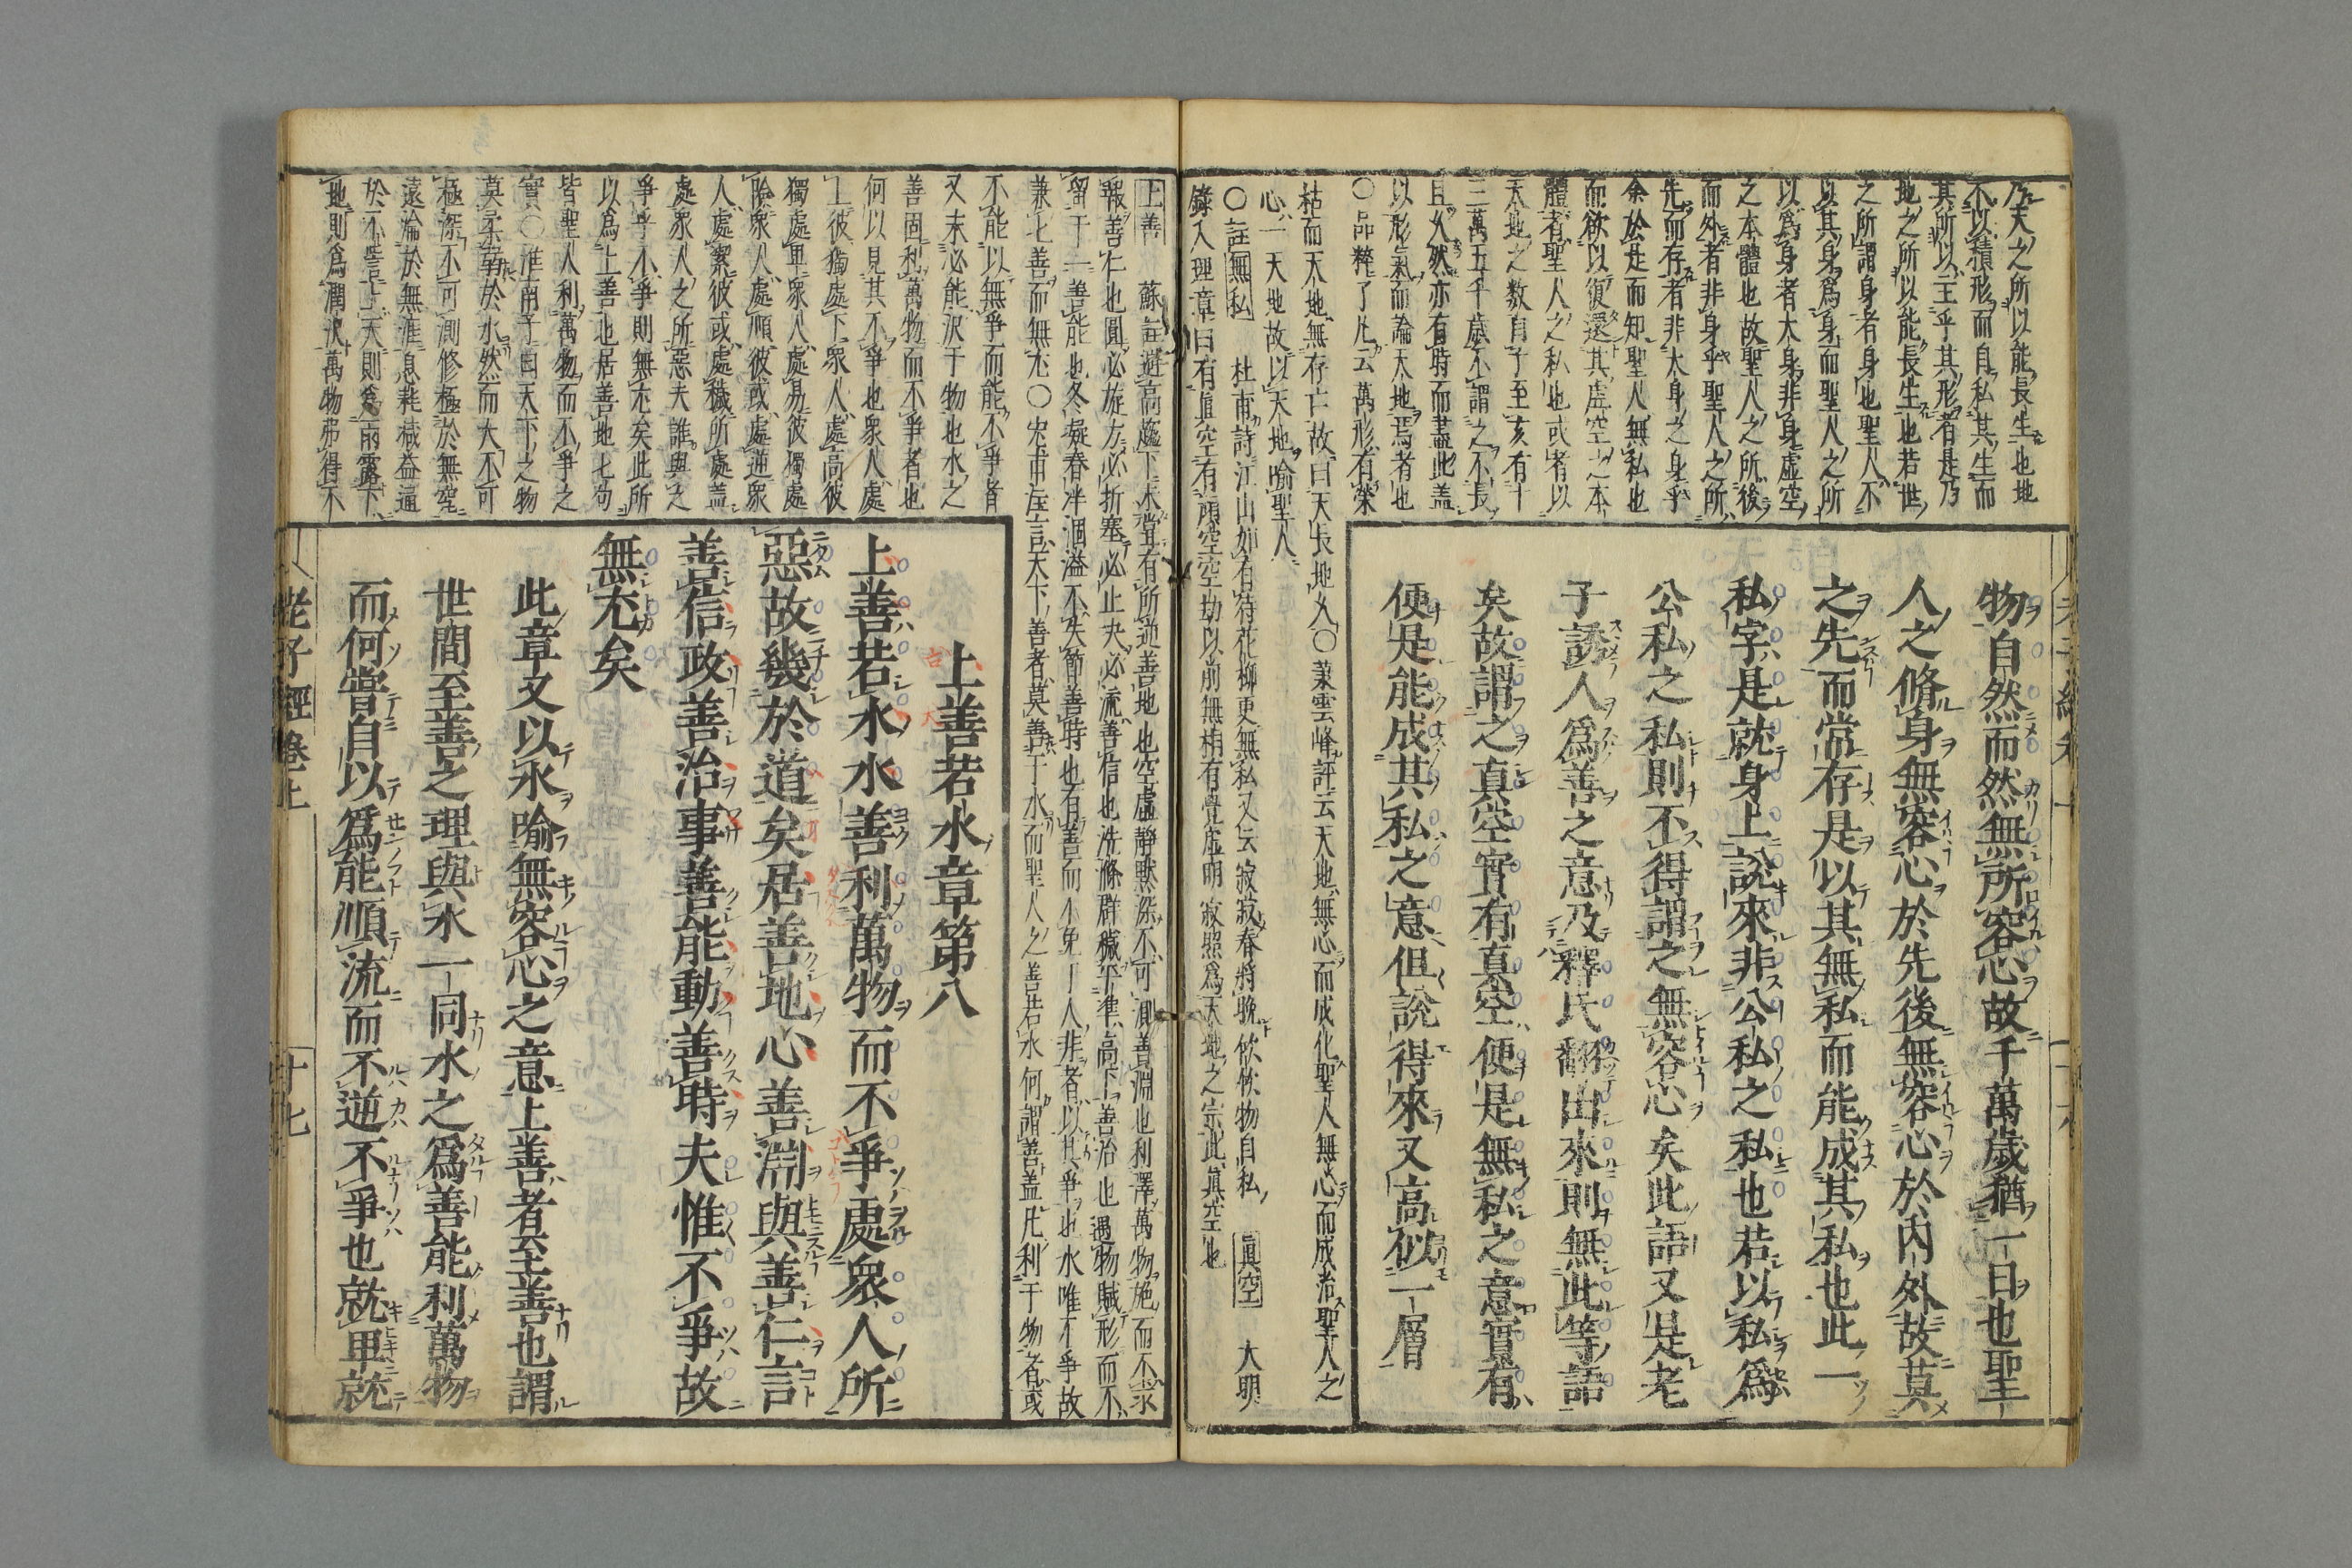 乃天之所以能長生也地
不以積形而自私其生而
其所以主乎其形者是乃
地之所以能長生也若世
之所謂身者身也聖人不
以其身爲身而聖人之所
以爲身者大身非身虛空
之本體也故聖人之所後
而外者非身乎聖人之所
先而存者非大身之身乎
余於是而知聖人無私也
而欲以復還其虛空之本
體者聖人之私也或者以
天地之数自子至亥有十
二萬五千歲不謂之不長
且久然亦有時而盡此蓋
以形氣而論天地焉者也
〇品粹了凡云萬形有榮
枯而天地無存亡故曰天長地久〇藁雲峰評云天地無心而成化聖人無心而成治聖人之
心一天地故以天地喻聖人
〇註無私 杜甫詩江山如有待花柳更無私又云寂寂春將晚欣欣物自私 眞空 大明
錄入理章曰有眞空有頑空空劫以前無相有覺虛明寂照爲天地之宗此眞空也
物自然而然無所容心故千萬歲猶一日也聖
人之脩身無容心於先後無容心於内外故莫
之先而常存是以其無私而能成其私也此一
私字是就身上說來非公私之私也若以私爲
公私之私則不得謂之無容心矣此語又是老
子誘人爲善之意及釋氏翻出來則無此等語
矣故謂之真空實有真空便是無私之意實有
便是能成其私之意但說得來又高似一層
上善 蘇註避高趨下未嘗有所逆善地也空虛靜默深不可測善淵也利澤萬物施而不求
報善仁也圓必旋方必折塞必止决必流善信也洗滌群穢平準高下善治也遇物賦形而不
留于一善能也冬凝春泮涸溢不失節善時也有善而不免于人非者以其爭也水唯不爭故
兼七善而無尤〇宋甫座言天下善者莫善于水而聖人之善若水何謂善盖凡利于物者或
不能以無爭而能不爭者
又未必能沢于物也水之
善固利萬物而不爭者也
何以見其不爭也衆人處
上彼獨處下衆人處高彼
獨處卑衆人處易彼獨處
險衆人處順彼或處逆衆
人處潔彼或處穢所處盖
處衆人之所惡夫誰與之
爭乎不爭則無尤矣此所
以爲上善也居善地七句
皆聖人利萬物而不爭之
實〇淮南子曰天下之物
莫柔弱於水然而大不可
極深不可測修極於無窮
遠淪於無涯息耗減益通
於不訾上天則爲雨露下
地則爲潤沢萬物弗得不
上善若水章第八
上善若水水善利萬物而不爭處衆人所
惡故幾於道矣居善地心善淵與善仁言
善信政善治事善能動善時夫惟不爭故
無尤矣
此章又以水喻無容心之意上善者至善也謂
世間至善之理與水一同水之爲善能利萬物
而何嘗自以爲能順流而不逆不爭也就卑就
老子經卷上 十七